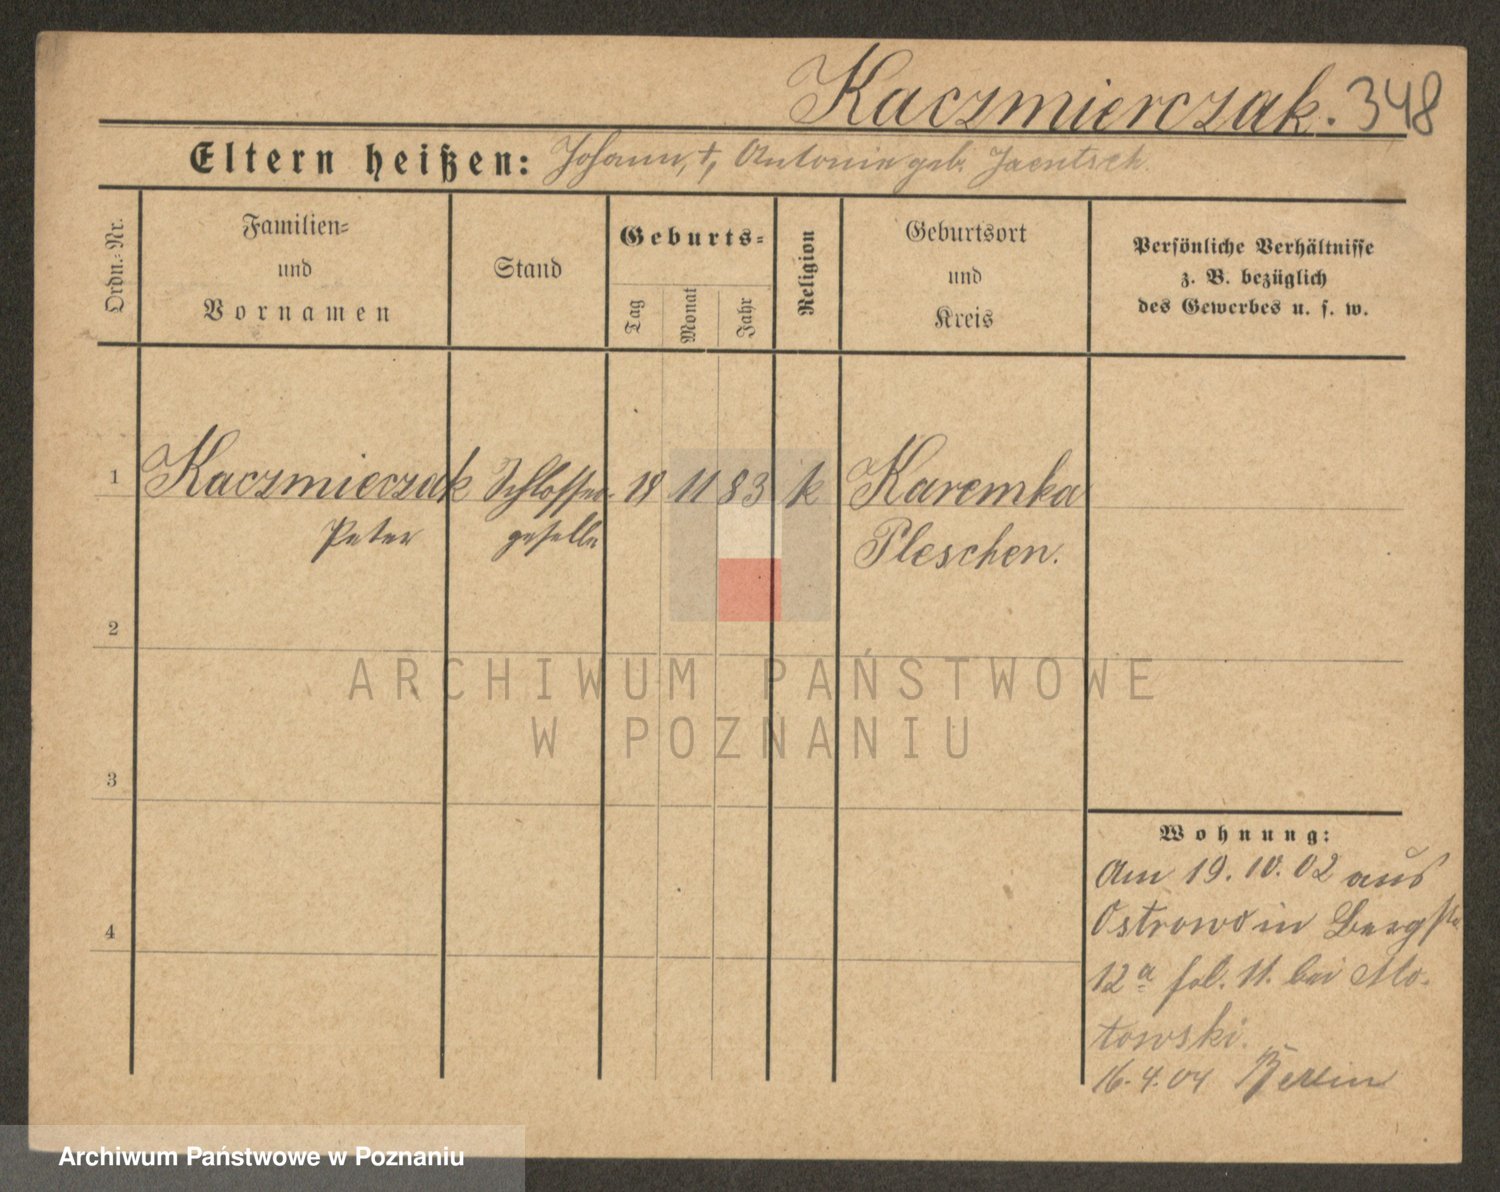 Kaczmierczak. 348
Eltern heißen: Johann, †, Antonie geb. Jaentsch.
Ordn.-Nr.
Familien-
und
Vornamen
Stand
Geburts-
Tag
Monat
Jahr
Religion
Geburtsort
und
Kreis
Persönliche Verhältnisse
z. B. bezüglich
des Gewerbes u. s. w.
1 Kaczmierczak Schlosser- 18 11 83 k Karemka
Peter geselle Pleschen.
2
3
4
Wohnung:
Am 19. 10. 02 aus
Ostrowo in Bergstr.
12a fol. 11. bei Mo-
towski.
16. 4. 04 Berlin
ARCHIWUM PAŃSTWOWE
W POZNANIU
Archiwum Państwowe w Poznaniu